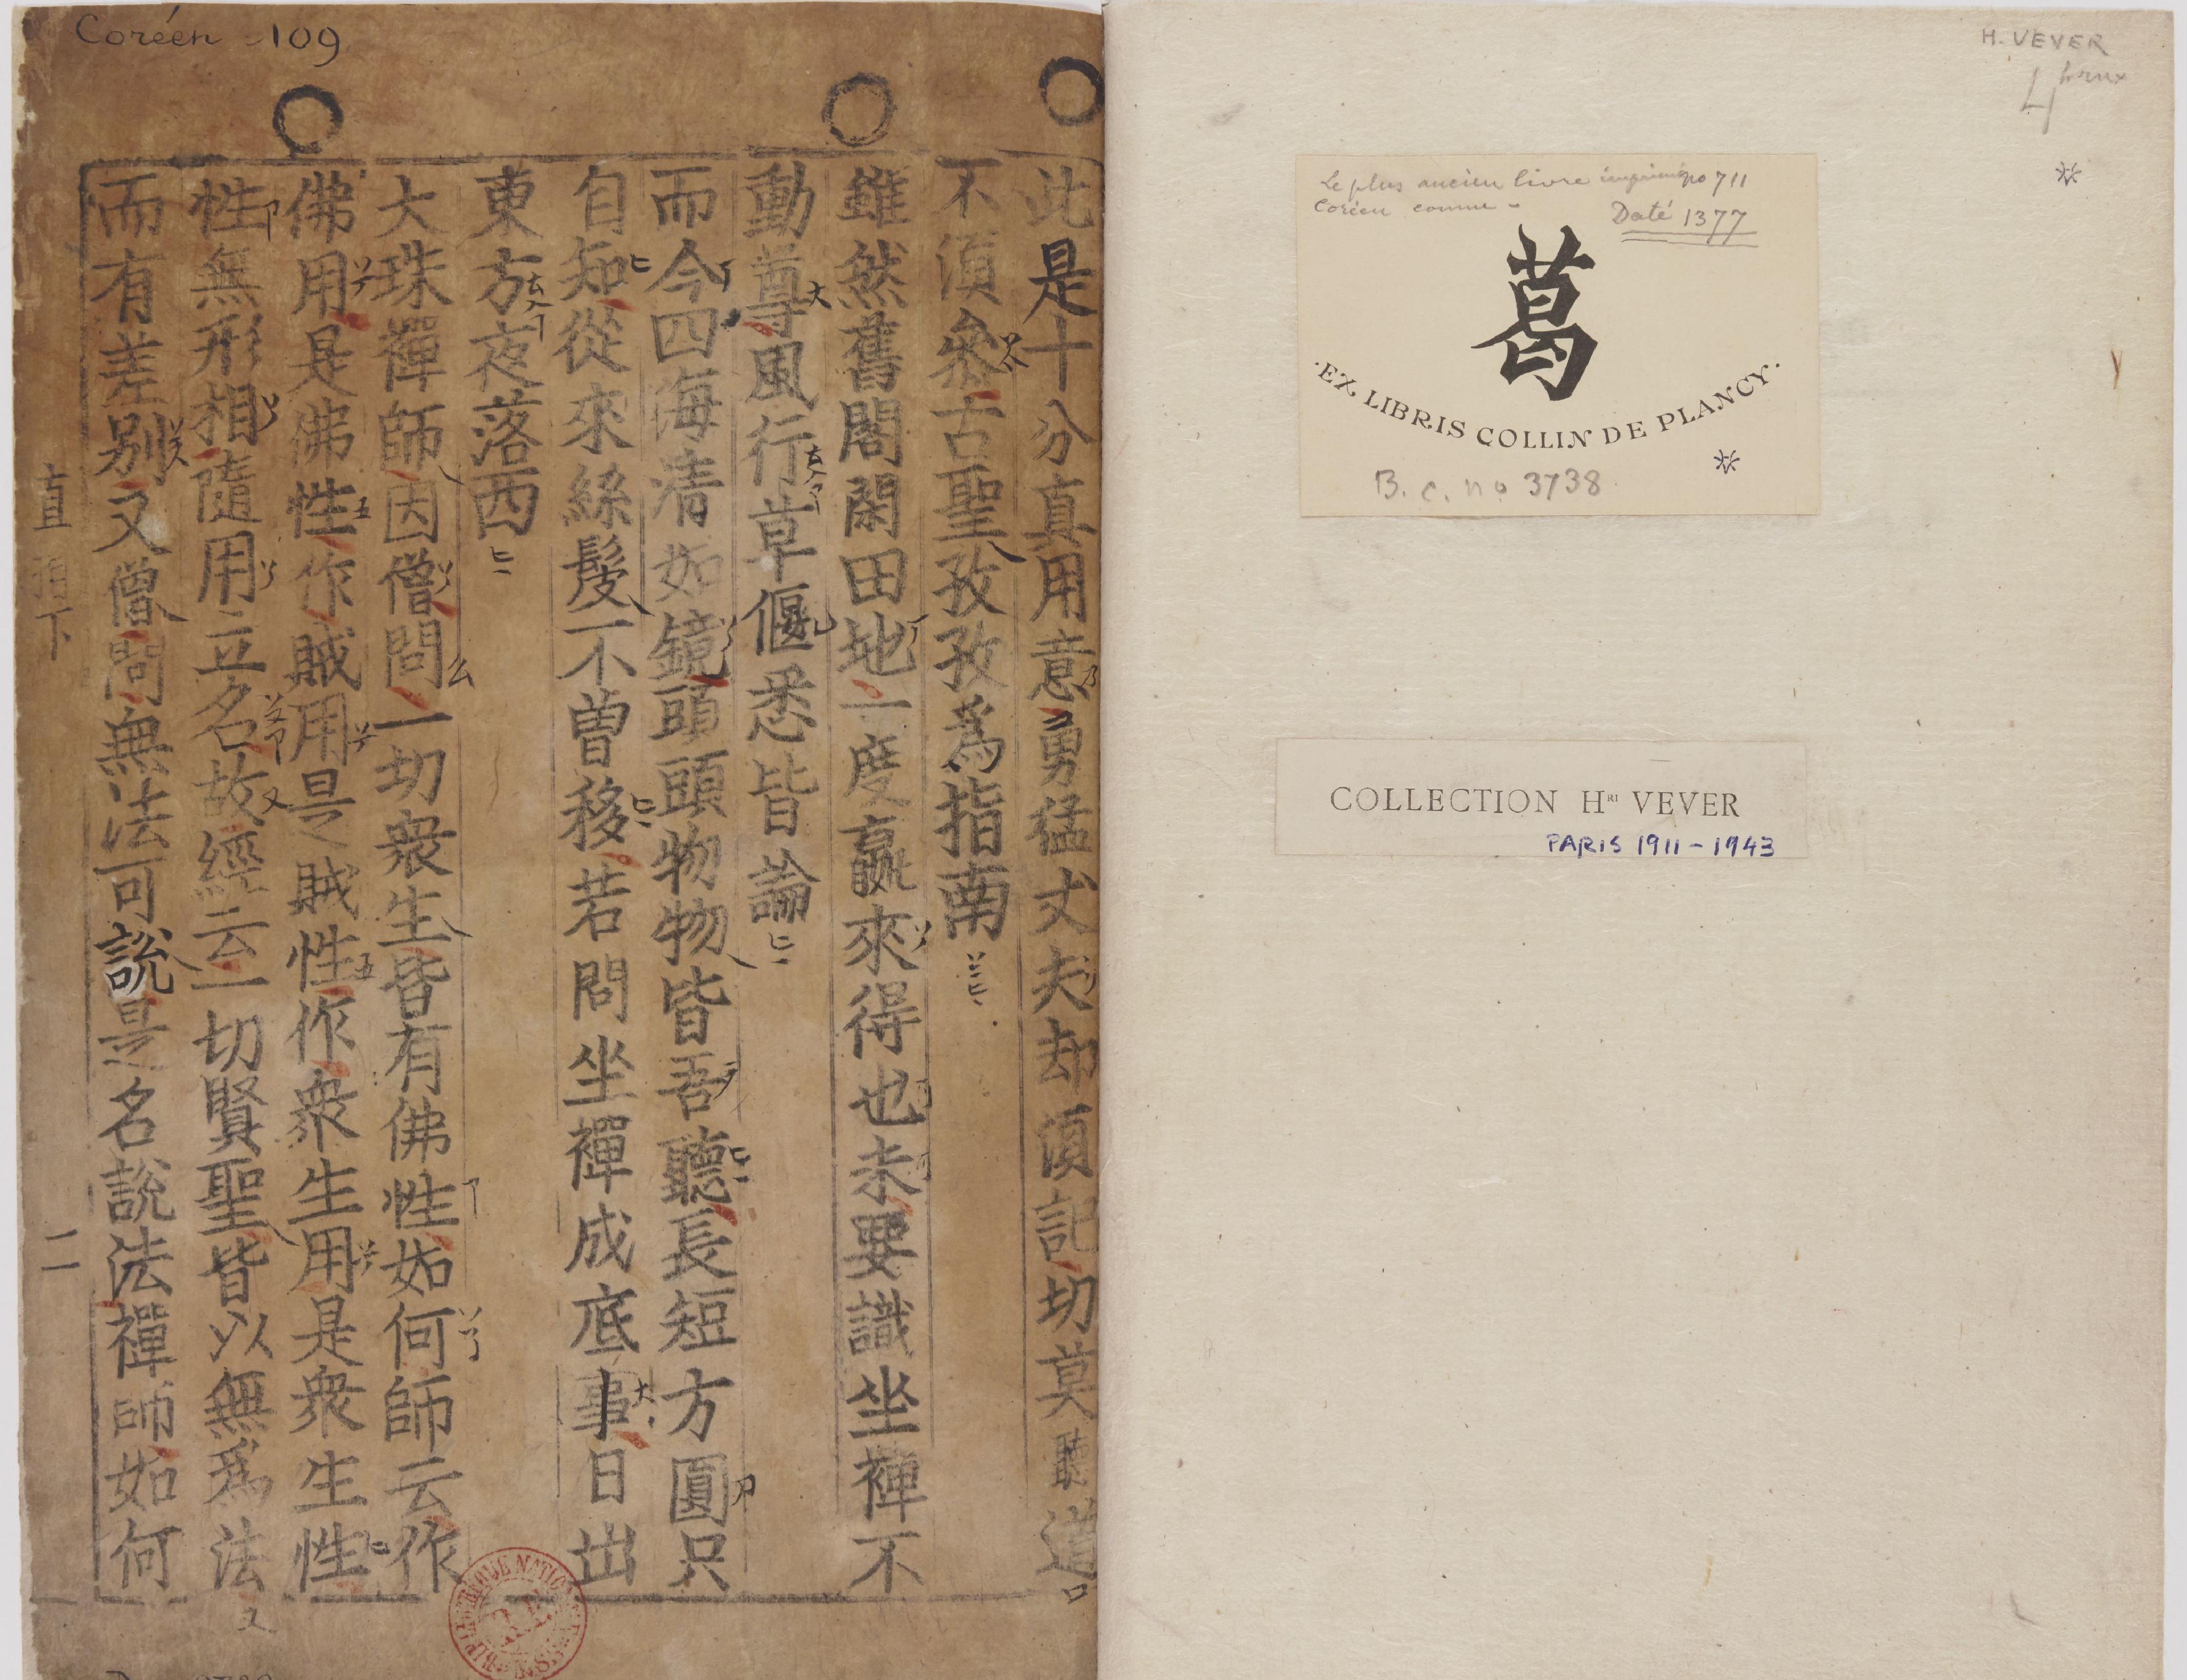 Coréen - 109
此是十分真用意勇猛丈夫却須記切莫聽道
不須叅古聖孜孜爲指南
雖然舊閣閑田地一度贏來得也未要識坐禪不
動尊風行草偃悉皆論
而今四海清如鏡頭頭物物皆吾聽長短方圓只
自知從來絲髮不曽移若問坐禪成底事日出
東方夜落西
大珠禪師因僧問一切衆生皆有佛性如何師云作
佛用是佛性作賊用是賊性作衆生用是衆生性
性無形相隨用立名故經云一切賢聖皆以無爲法
而有差别又僧問無法可說是名說法禪師如何
直指下
二
H. VEVER
4
Le plus ancien livre imprimé
Coréen connu =
no 711
Daté 1377
葛
·EX LIBRIS COLLIN DE PLANCY·
B. C. no 3738
COLLECTION HRI VEVER
PARIS 1911 - 1943